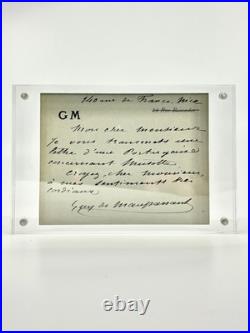 140 rue de France, Nice
GM
Mon cher monsieur
Je vous transmets une
lettre d'une Portugaise
concernant Musotte
Croyez, cher monsieur,
à mes sentiments très
cordiaux
Guy de Maupassant